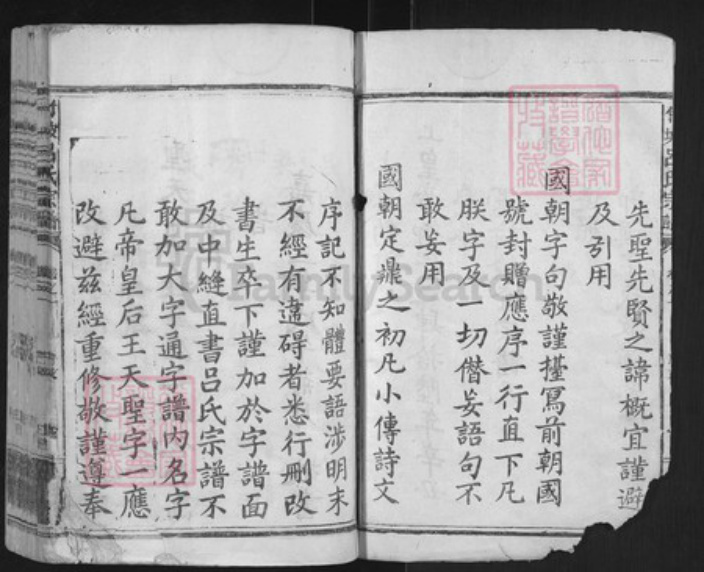 先聖先賢之諱概宜謹避
及引用
國朝字句敬謹擡寫前朝國
號封贈應序一行直下凡
朕字及一切僭妄語句不
敢妄用
國朝定鼎之初凡小傳詩文
序記不知體要語涉明末
不經有違碍者悉行刪改
書生卒下謹加於字譜面
及中縫直書呂氏宗譜不
敢加大字通字譜內名字
凡帝皇后王天聖字一應
改避兹經重修敬謹遵奉
FamilySearch